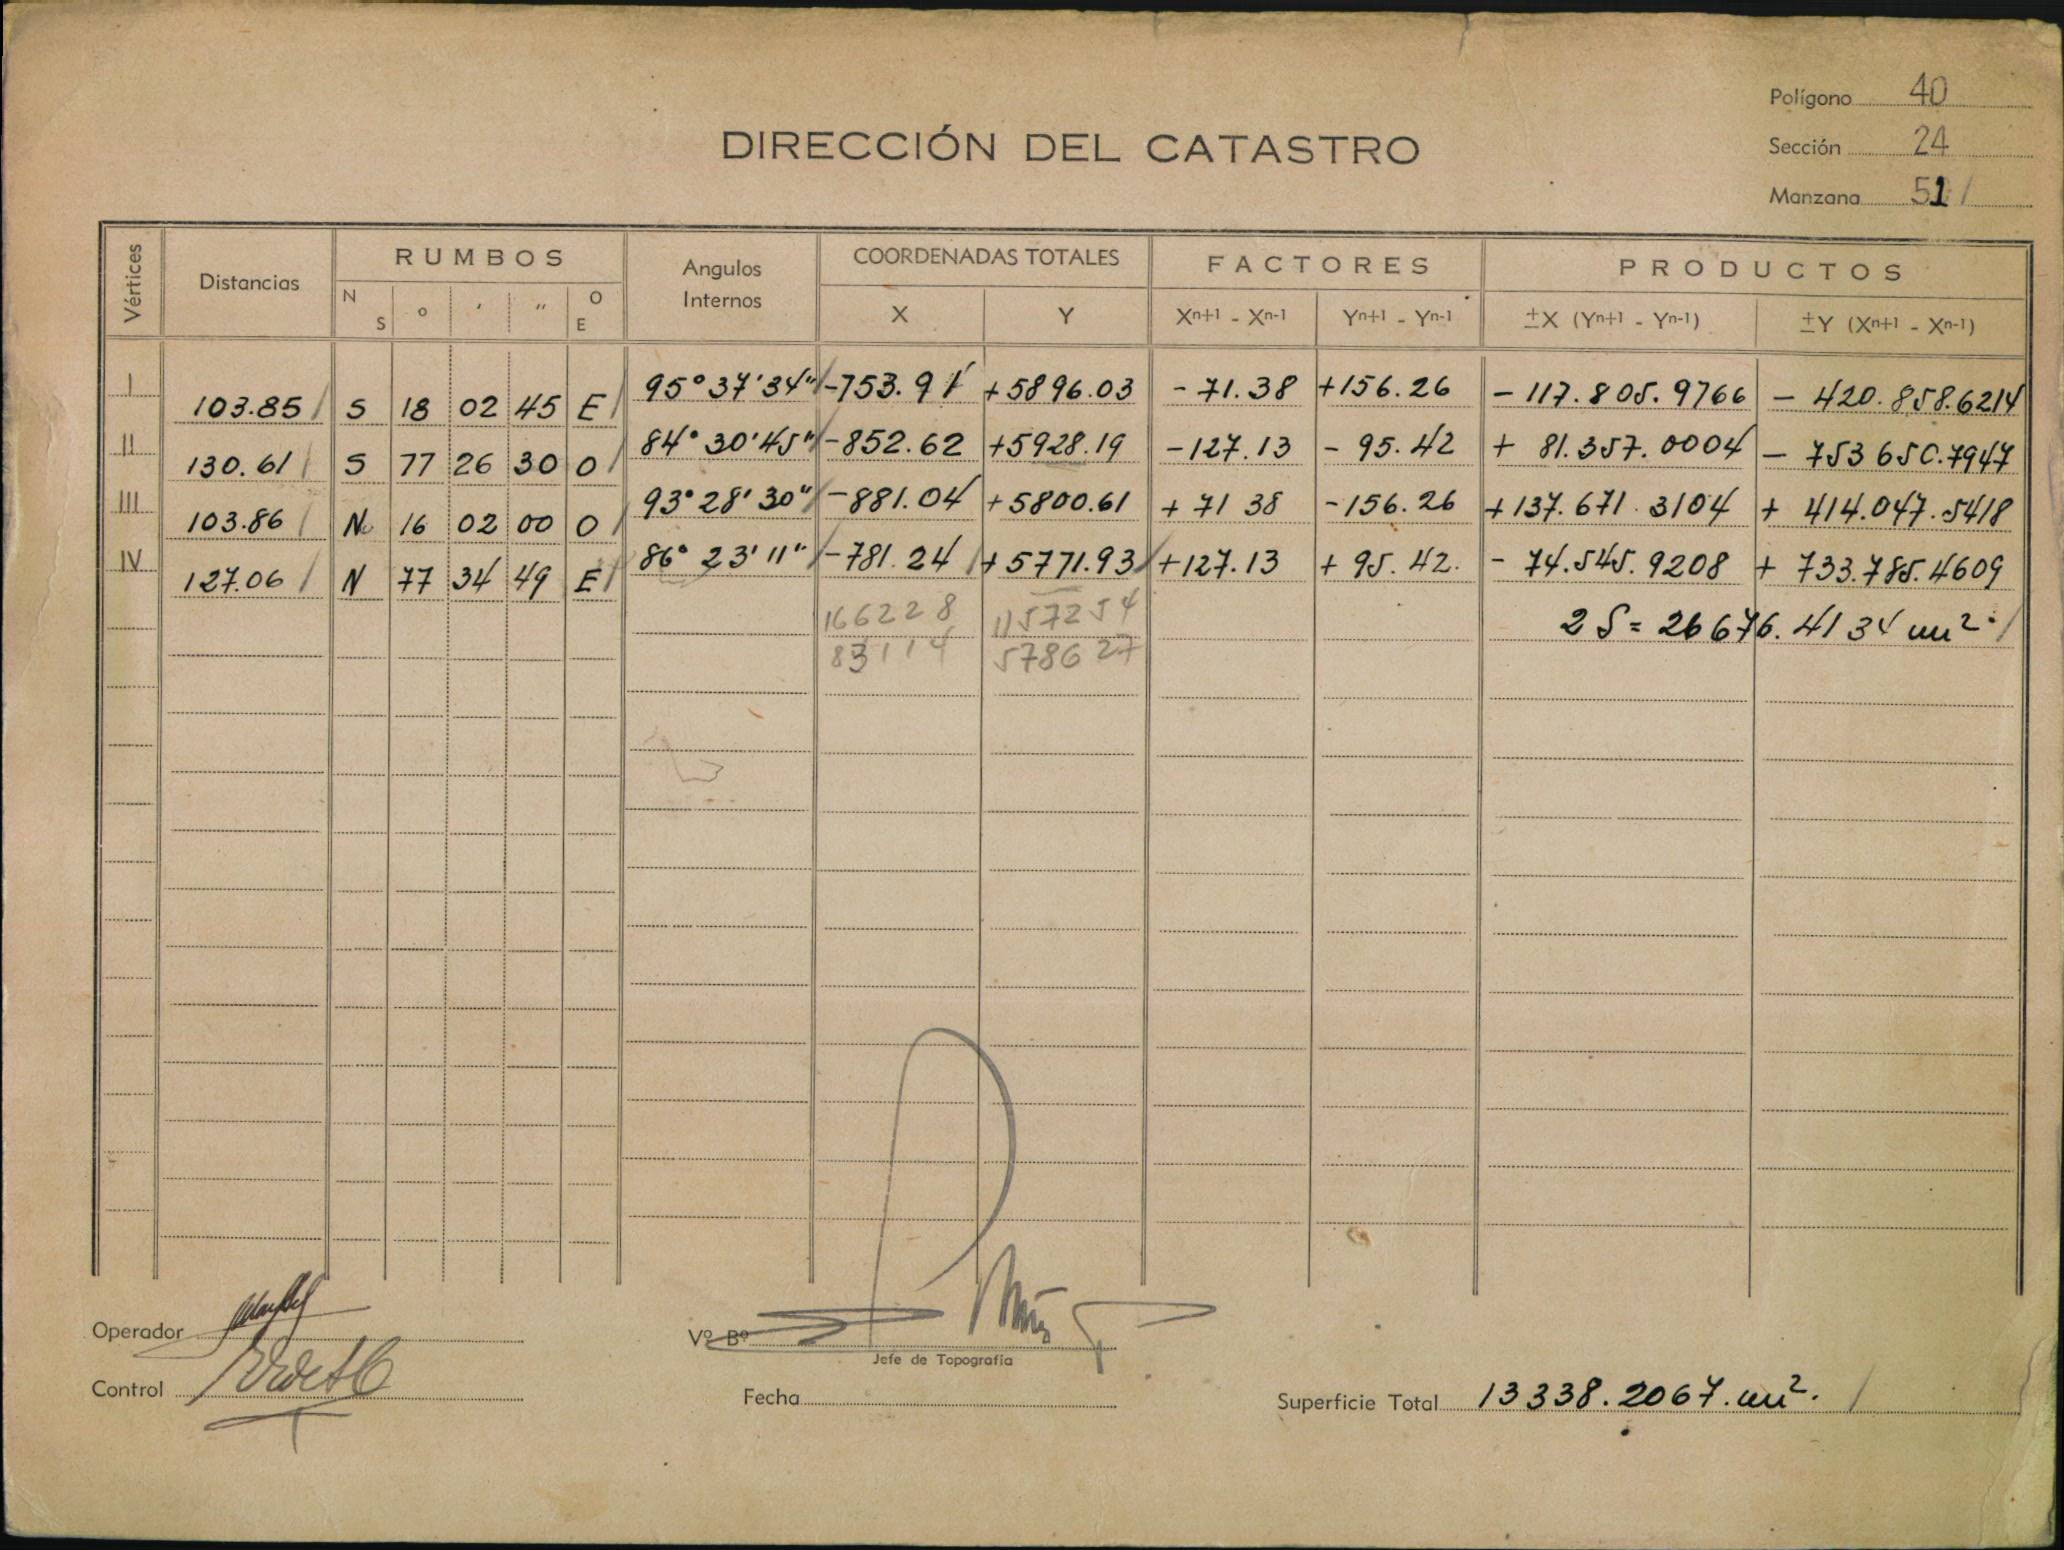 Polígono 40
DIRECCIÓN DEL CATASTRO
Sección 24
Manzana 51 /
Vértices
Distancias
RUMBOS
N S ° ' '' O E
Angulos Internos
COORDENADAS TOTALES
X Y
FACTORES
Xn+1 - Xn-1 Yn+1 - Yn-1
PRODUCTOS
±X (Yn+1 - Yn-1) ±Y (Xn+1 - Xn-1)
I 95° 37' 34" / -753.91 / +5896.03 - 71.38 +156.26 - 117.805.9766 - 420.858.6214
103.85 / S 18 02 45 E /
II 84° 30' 45" / -852.62 +5928.19 -127.13 - 95.42 + 81.357.0004 - 753 650.7947
130.61 / S 77 26 30 O /
III 93° 28' 30" / -881.04 +5800.61 + 71 38 -156.26 +137.671.3104 + 414.047.5418
103.86 / N 16 02 00 O /
IV 86° 23' 11" / -781.24 / +5771.93 / +127.13 + 95.42. - 74.545.9208 + 733.785.4609
127.06 / N 77 34 49 E /
166228 1157254 2 S = 26676.4134 m2. /
83114 578627
Operador
Vº Bº
Jefe de Topografía
Control
Fecha
Superficie Total 13338.2067.m2. /